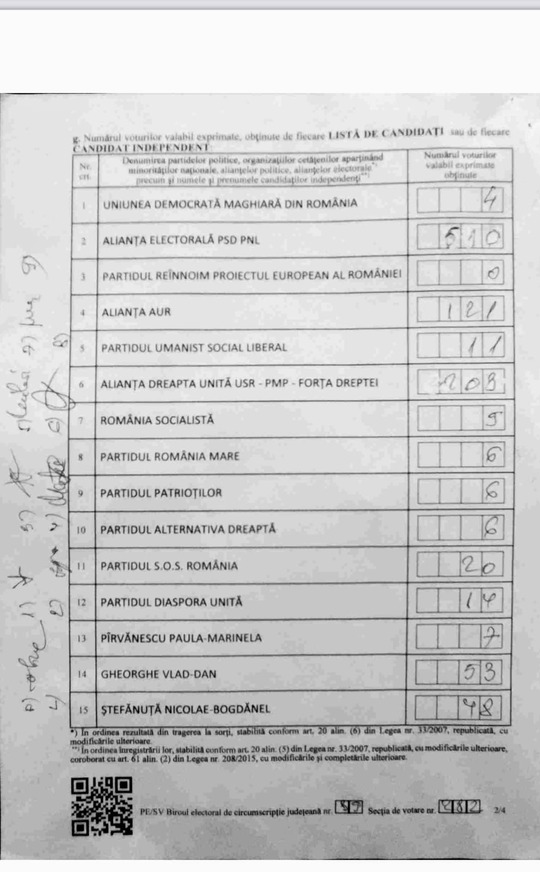 g. Numărul voturilor valabil exprimate, obținute de fiecare LISTĂ DE CANDIDAȚI sau de fiecare
CANDIDAT INDEPENDENT
Nr. crt.
Denumirea partidelor politice, organizațiilor cetățenilor aparținând
minorităților naționale, alianțelor politice, alianțelor electorale*)
precum și numele și prenumele candidaților independenți**)
Numărul voturilor
valabil exprimate
obținute
1 UNIUNEA DEMOCRATĂ MAGHIARĂ DIN ROMÂNIA 4
2 ALIANȚA ELECTORALĂ PSD PNL 510
3 PARTIDUL REÎNNOIM PROIECTUL EUROPEAN AL ROMÂNIEI 0
4 ALIANȚA AUR 121
5 PARTIDUL UMANIST SOCIAL LIBERAL 11
6 ALIANȚA DREAPTA UNITĂ USR - PMP - FORȚA DREPTEI 203
7 ROMÂNIA SOCIALISTĂ
8 PARTIDUL ROMÂNIA MARE 6
9 PARTIDUL PATRIOȚILOR 6
10 PARTIDUL ALTERNATIVA DREAPTĂ 6
11 PARTIDUL S.O.S. ROMÂNIA 20
12 PARTIDUL DIASPORA UNITĂ 14
13 PÎRVĂNESCU PAULA-MARINELA 7
14 GHEORGHE VLAD-DAN 53
15 ȘTEFĂNUȚĂ NICOLAE-BOGDĂNEL 48
*) În ordinea rezultată din tragerea la sorți, stabilită conform art. 20 alin. (6) din Legea nr. 33/2007, republicată, cu
modificările ulterioare.
**) În ordinea înregistrării lor, stabilită conform art. 20 alin. (5) din Legea nr. 33/2007, republicată, cu modificările ulterioare,
coroborat cu art. 61 alin. (2) din Legea nr. 208/2015, cu modificările și completările ulterioare.
PE/SV Biroul electoral de circumscripție județeană nr. Secția de votare nr. 2/4